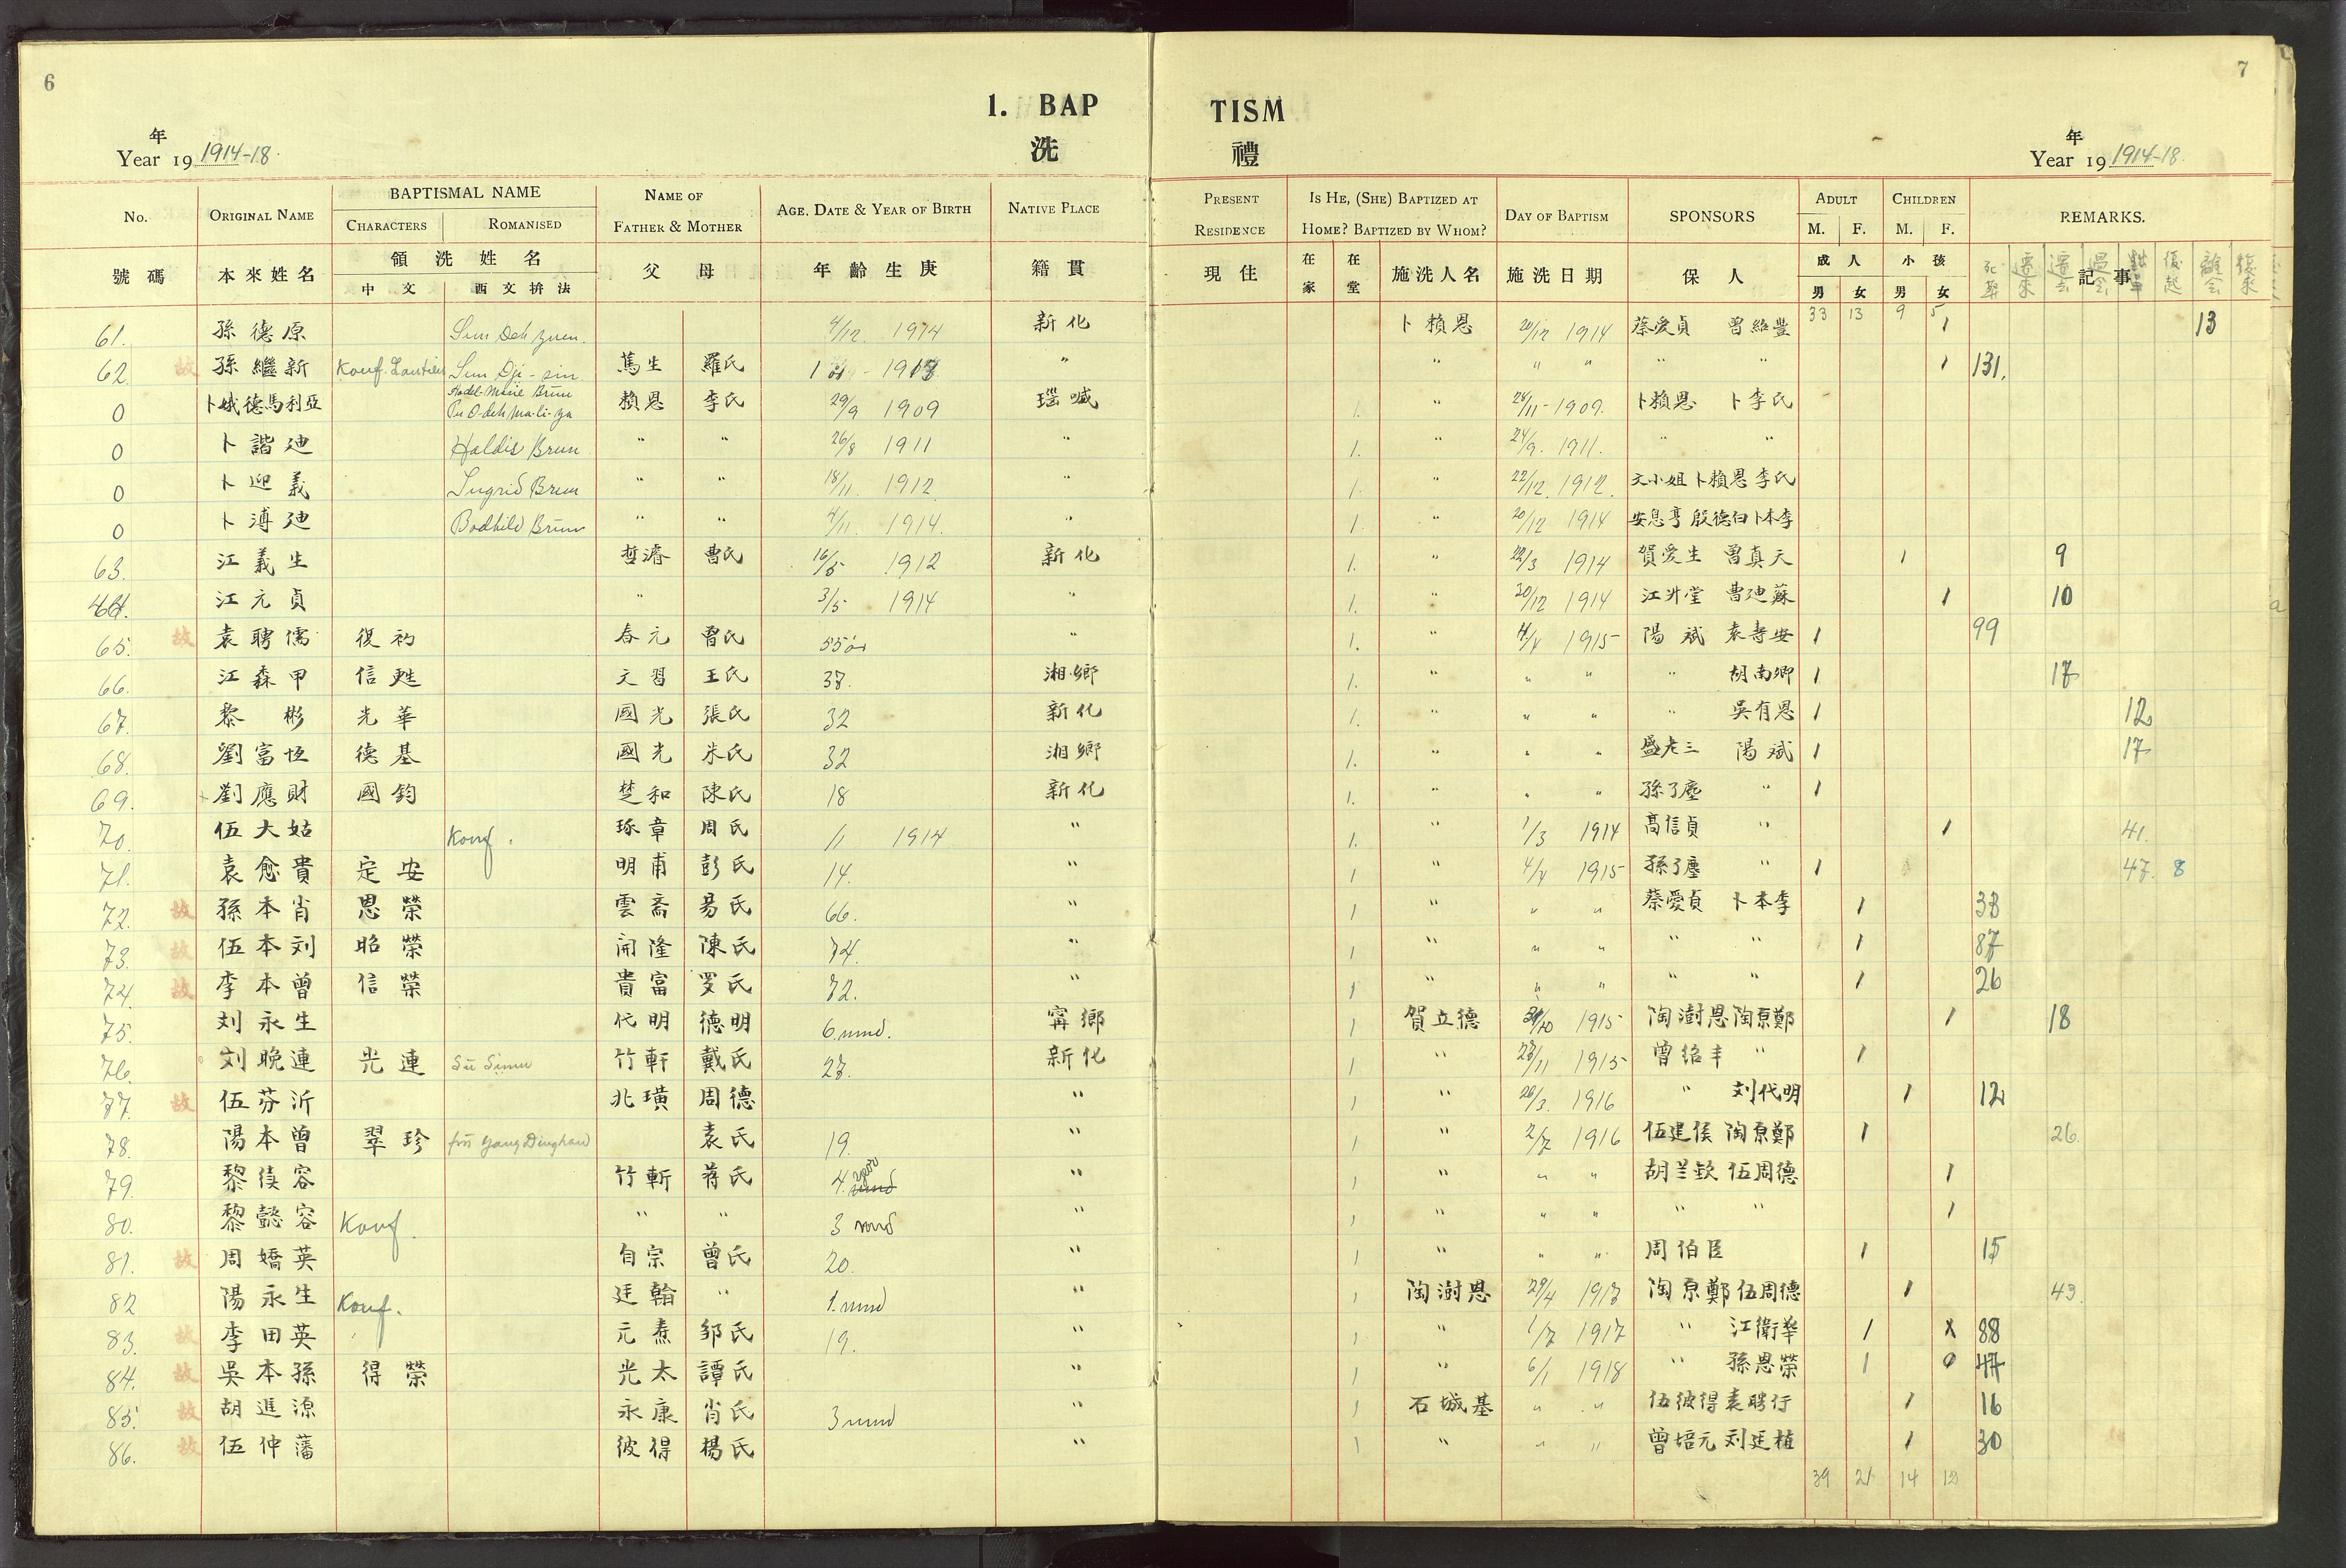 6
7
1. BAP TISM
洗 禮
年
Year 19 1914-18.
年
Year 19 1914-18.
No. ORIGINAL NAME BAPTISMAL NAME NAME OF AGE, DATE & YEAR OF BIRTH NATIVE PLACE PRESENT IS HE, (SHE) BAPTIZED AT DAY OF BAPTISM SPONSORS ADULT CHILDREN REMARKS.
CHARACTERS ROMANISED FATHER & MOTHER RESIDENCE HOME? BAPTIZED BY WHOM? M. F. M. F.
號碼 本來姓名 領洗姓名 父 母 年齡生庚 籍貫 現住 在家 在堂 施洗人名 施洗日期 保人 成人 小孩 記事
中文 西文拚法 男 女 男 女
死葬 遷來 遷去 離会
33 13 9 5
61. 孫德原 Sun Deh yuen. 4/12. 1914 新化 卜賴恩 20/12 1914 蔡愛貞 曾紹豐 1 13
62 故 孫繼新 Konf. Sun Dji-sin 萬生 羅氏 " " " " " " 1 131.
0 卜娥德馬利亞 Marie Brun Pu O-deh Ma-li-ya 賴恩 李氏 29/9 1909 瑙喊 1. " 26/11-1909. 卜賴恩 卜李氏
0 卜諧廸 Haldis Brun " " 26/8 1911 " 1. " 24/9. 1911. " "
0 卜迎義 Ingrid Brun " " 18/11. 1912 " 1. " 22/12. 1912. 文小姐 卜賴恩 李氏
0 卜溥廸 Bodhild Brun " " 4/11. 1914. " 1 " 20/12 1914 安息亨 殷德白 卜本李
63. 江義生 哲濬 曹氏 16/5 1912 新化 1. " 22/3 1914 賀愛生 曾真天 1 9
64. 江元貞 " 3/5 1914 " 1. " 20/12 1914 江升堂 曹廸蘇 1 10
65. 故 袁聘儒 復礽 春元 曾氏 55 " 1. " 4/4 1915 陽斌 袁壽安 1 99
66. 江森甲 信甦 文習 王氏 37. 湘鄉 1. " " " " 胡南卿 1 17
67. 黎彬 光華 國光 張氏 32 新化 1. " " " " 吳有恩 1 12
68. 劉富恆 德基 國光 朱氏 32 湘鄉 1. " " " 盛老三 陽斌 1 17
69. 劉應財 國鈞 楚和 陳氏 18 新化 1. " " " 孫了塵 " 1
70. 伍大姑 Konf. 琢章 周氏 1/1 1914 " 1. " 1/3 1914 高信貞 " 1 41.
71. 袁愈貴 定安 明甫 彭氏 14. " 1 " 4/4 1915 孫了塵 " 1 47. 8
72. 故 孫本肖 恩榮 雲斋 易氏 66. " 1 " " " 蔡愛貞 卜本李 1 38
73. 故 伍本刘 昭榮 開隆 陳氏 74. " 1 " " " " " 1 87
74. 故 李本曾 信榮 貴富 罗氏 72. " 1 " " " " " 1 26
75. 刘永生 代明 德明 6 mnd. 寗鄉 1 賀立德 /10 1915 陶澍恩 陶原鄭 1 18
76. 刘晚連 光連 竹軒 戴氏 27. 新化 1 " 27/11 1915 曾紹丰 " 1
77. 故 伍芬沂 兆璜 周德 " 1 " 26/3. 1916 " 刘代明 1 12
78. 陽本曾 翠珍 fru Yang Dinghan 袁氏 19. " 1 " 2/7 1916 伍建侯 陶原鄭 1 26.
79. 黎俟容 竹斬 蒋氏 4. mnd " 1 " " " 胡兰欽 伍周德 1
80. 黎懿容 Konf. " " 3 mnd " 1 " " " " " 1
81. 故 周嬌英 自宗 曾氏 20. " 1 " " " 周伯臣 1 15
82 陽永生 Konf. 廷翰 " 1. mnd " 1 陶澍恩 29/4 1917 陶原鄭 伍周德 1 43.
83. 故 李田英 元燾 邹氏 19. " 1 " 1/7 1917 " 江衛華 1 x 88
84. 故 吳本孫 得榮 光太 譚氏 " 1 " 6/1 1918 " 孫恩榮 1 0 47
85. 故 胡進源 永康 肖氏 3 mnd " 1 石城基 " " 伍彼得 袁聘行 1 16
86. 故 伍仲藩 彼得 楊氏 " 1 " " " 曾培元 刘廷植 1 30
39 21 14 12